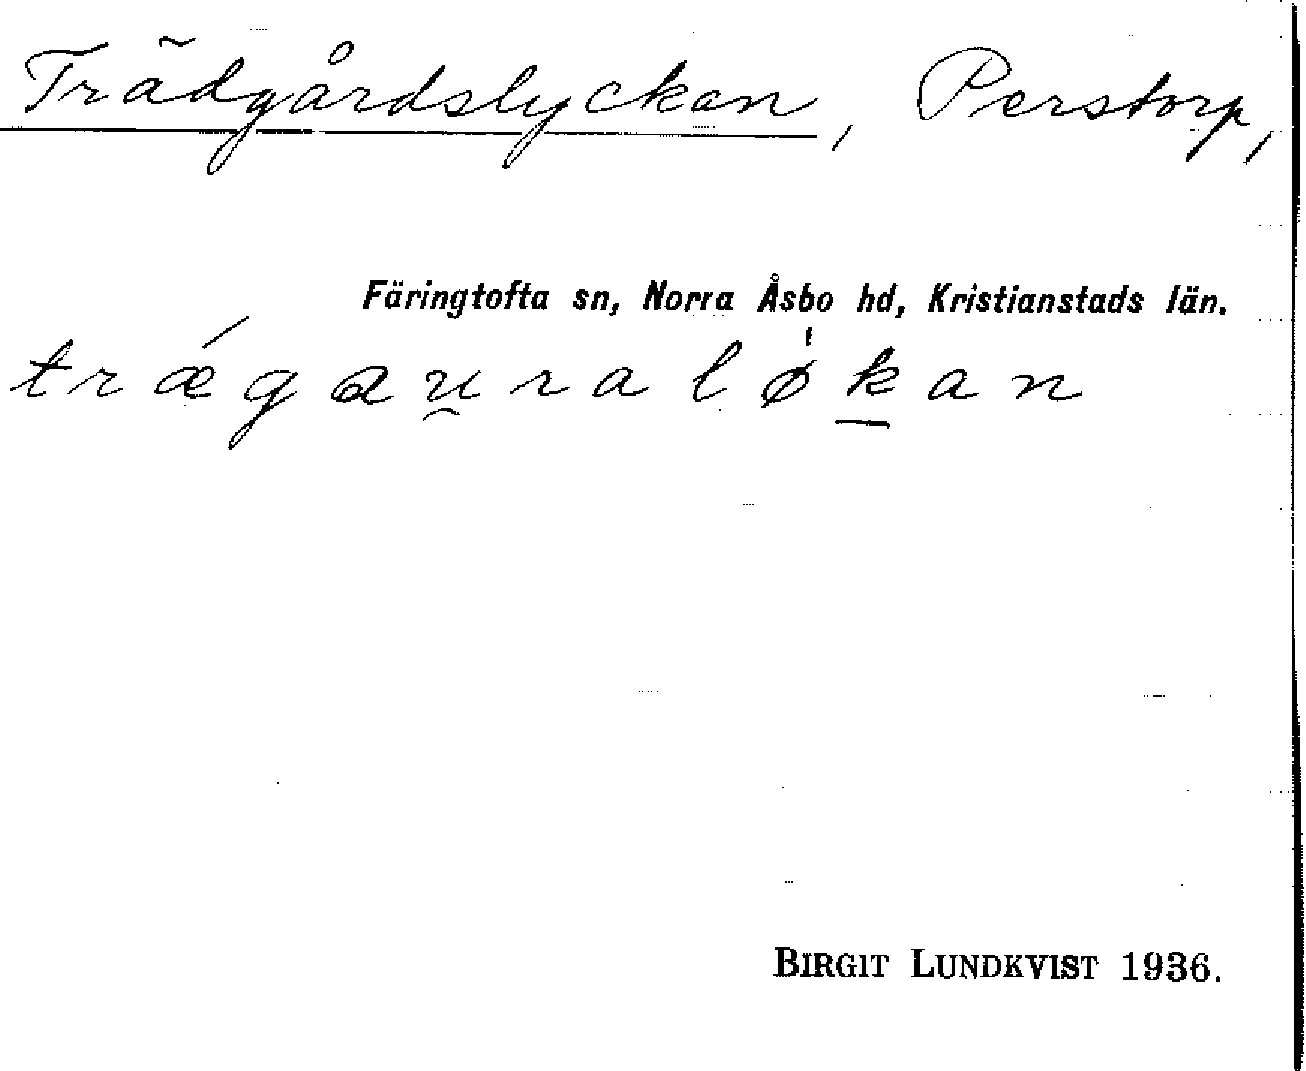 Trädgårdslyckan, Perstorp,
Färingtofta sn, Norra Åsbo hd, Kristianstads län.
trǽgau̯raløk̲an
BIRGIT LUNDKVIST 1936.